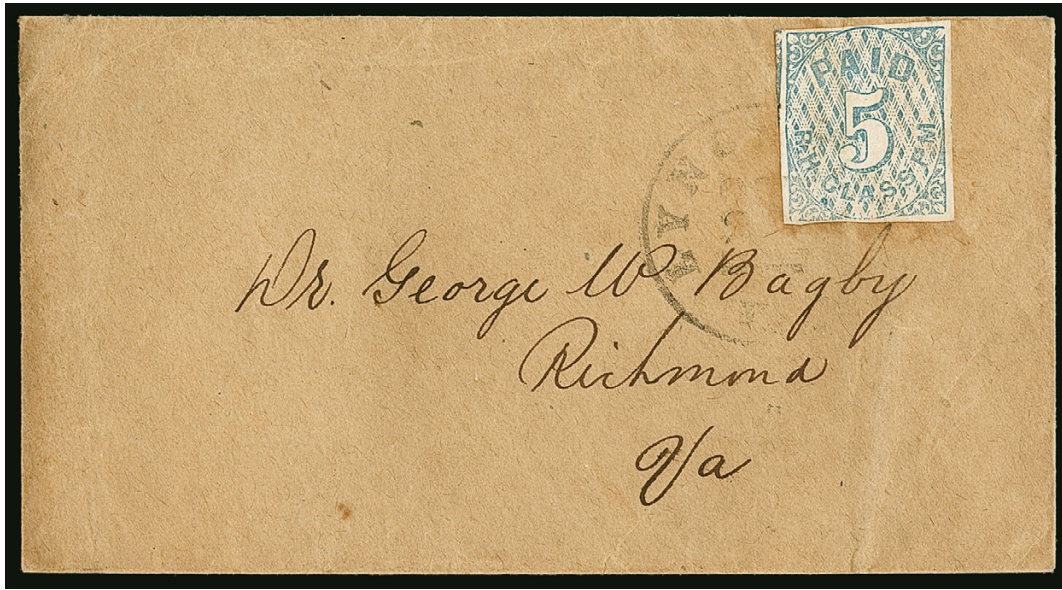 PAID
5
R.H. GLASS. P.M
LYNC
Dr. George W Bagby
Richmond
Va